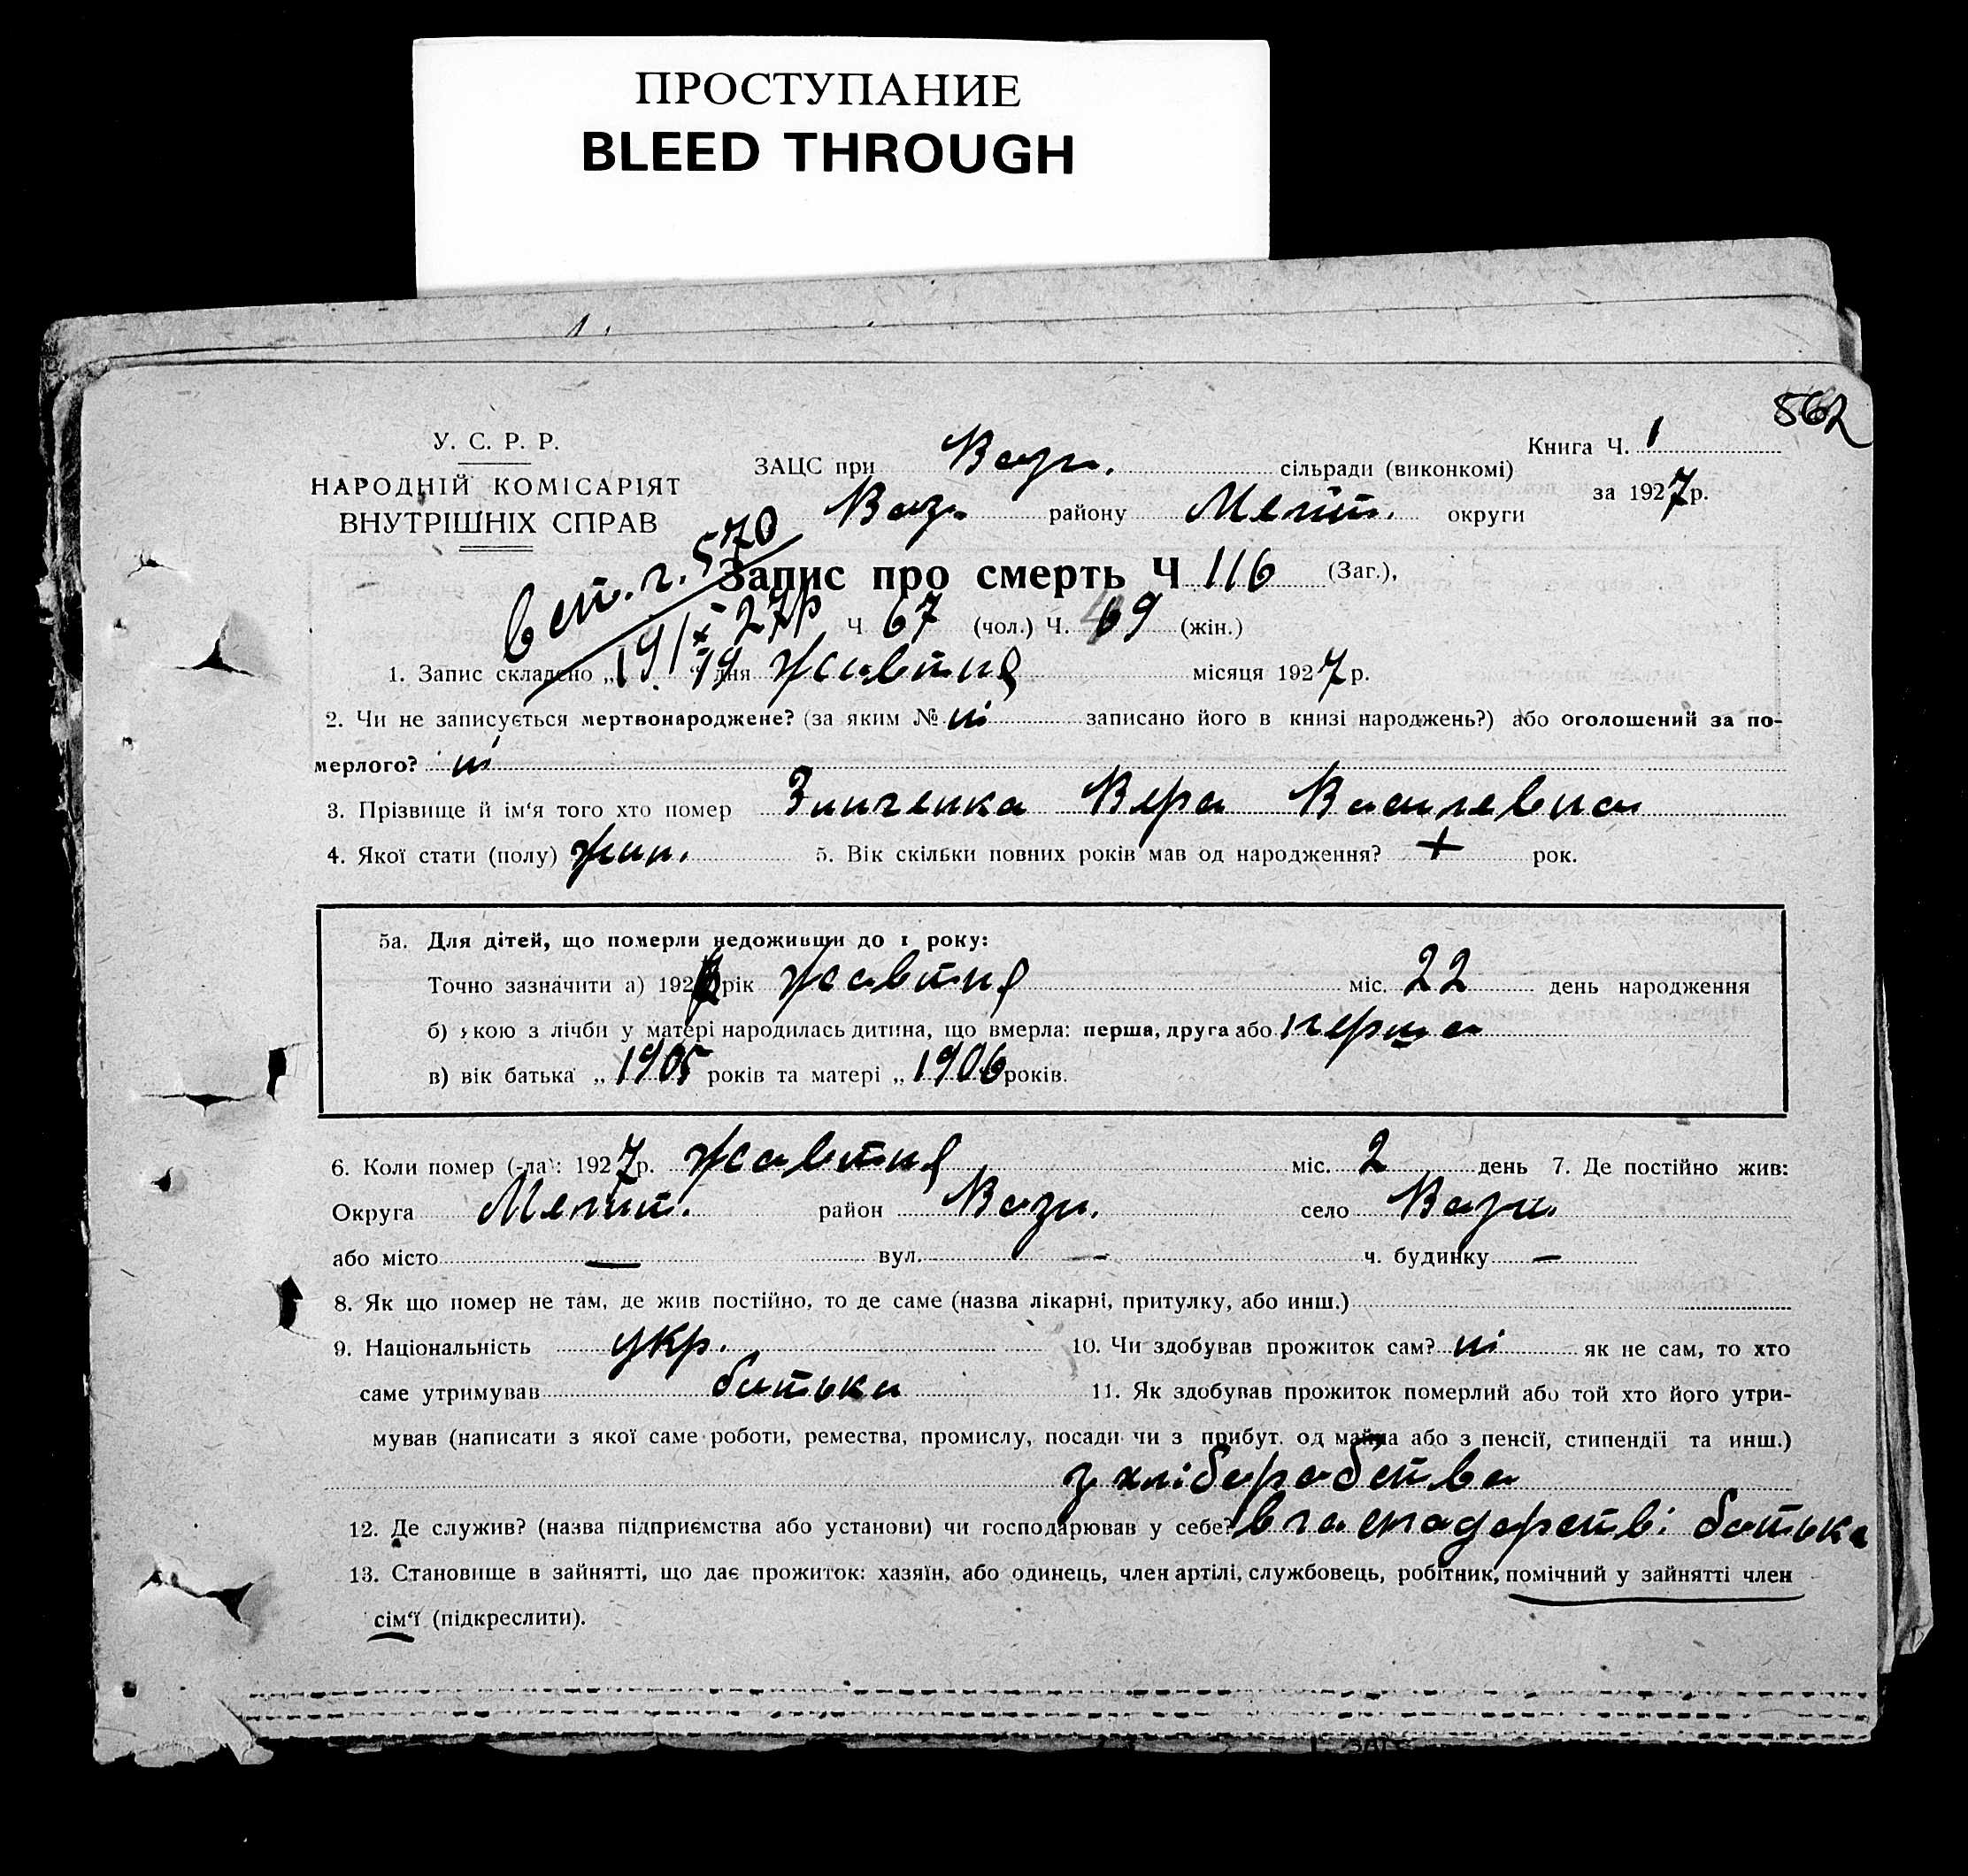 ПРОСТУПАНИЕ
BLEED THROUGH
562
У. С. Р. Р.
НАРОДНІЙ КОМІСАРІЯТ
ВНУТРІШНІХ СПРАВ
Книга Ч. 1
за 1927 р.
ЗАЦС при Возн. сільради (виконкомі)
Возн. району Меліт. округи
в ст. г. 570
19/X 27 р
Запис про смерть Ч 116 (Заг.),
Ч 67 (чол.) Ч. 69 (жін.)
1. Запис складено „ 19 “ дня Жовтня місяця 1927 р.
2. Чи не записується мертвонароджене? (за яким № ні записано його в книзі народжень?) або оголошений за по-
мерлого? ні
3. Прізвище й ім'я того хто помер Зинченка Вера Василевна
4. Якої стати (полу) жін. 5. Вік скільки повних років мав од народження? + рок.
5а. Для дітей, що померли недоживши до 1 року:
Точно зазначити а) 192 рік Жовтня міс. 22 день народження
б) якою з лічби у матері народилась дитина, що вмерла: перша, друга або перша
в) вік батька „ 1905 років та матері „ 1906 років.
6. Коли помер (-ла): 1927 р. Жовтня міс. 2 день 7. Де постійно жив:
Округа Меліт. район Возн. село Возн.
або місто — вул. - ч. будинку —
8. Як що помер не там, де жив постійно, то де саме (назва лікарні, притулку, або инш.)
9. Національність укр. 10. Чи здобував прожиток сам? ні як не сам, то хто
саме утримував батько 11. Як здобував прожиток померлий або той хто його утри-
мував (написати з якої саме роботи, ремества, промислу, посади чи з прибут. од майна або з пенсії, стипендії та инш.)
з хліборобства
12. Де служив? (назва підприємства або установи) чи господарював у себе? в господарстві батька
13. Становище в зайнятті, що дає прожиток: хазяїн, або одинець, член артілі, службовець, робітник, помічний у зайнятті член
сім'ї (підкреслити).